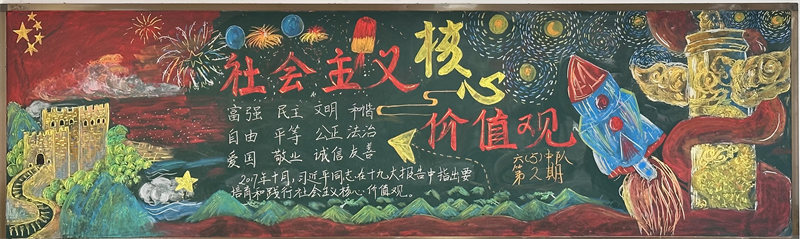 社会主义
核心
价值观
富强 民主 文明 和谐
自由 平等 公正 法治
爱国 敬业 诚信 友善
2017年十月,习近平同志在十九大报告中指出要
培育和践行社会主义核心价值观。
六(5)中队
第2期